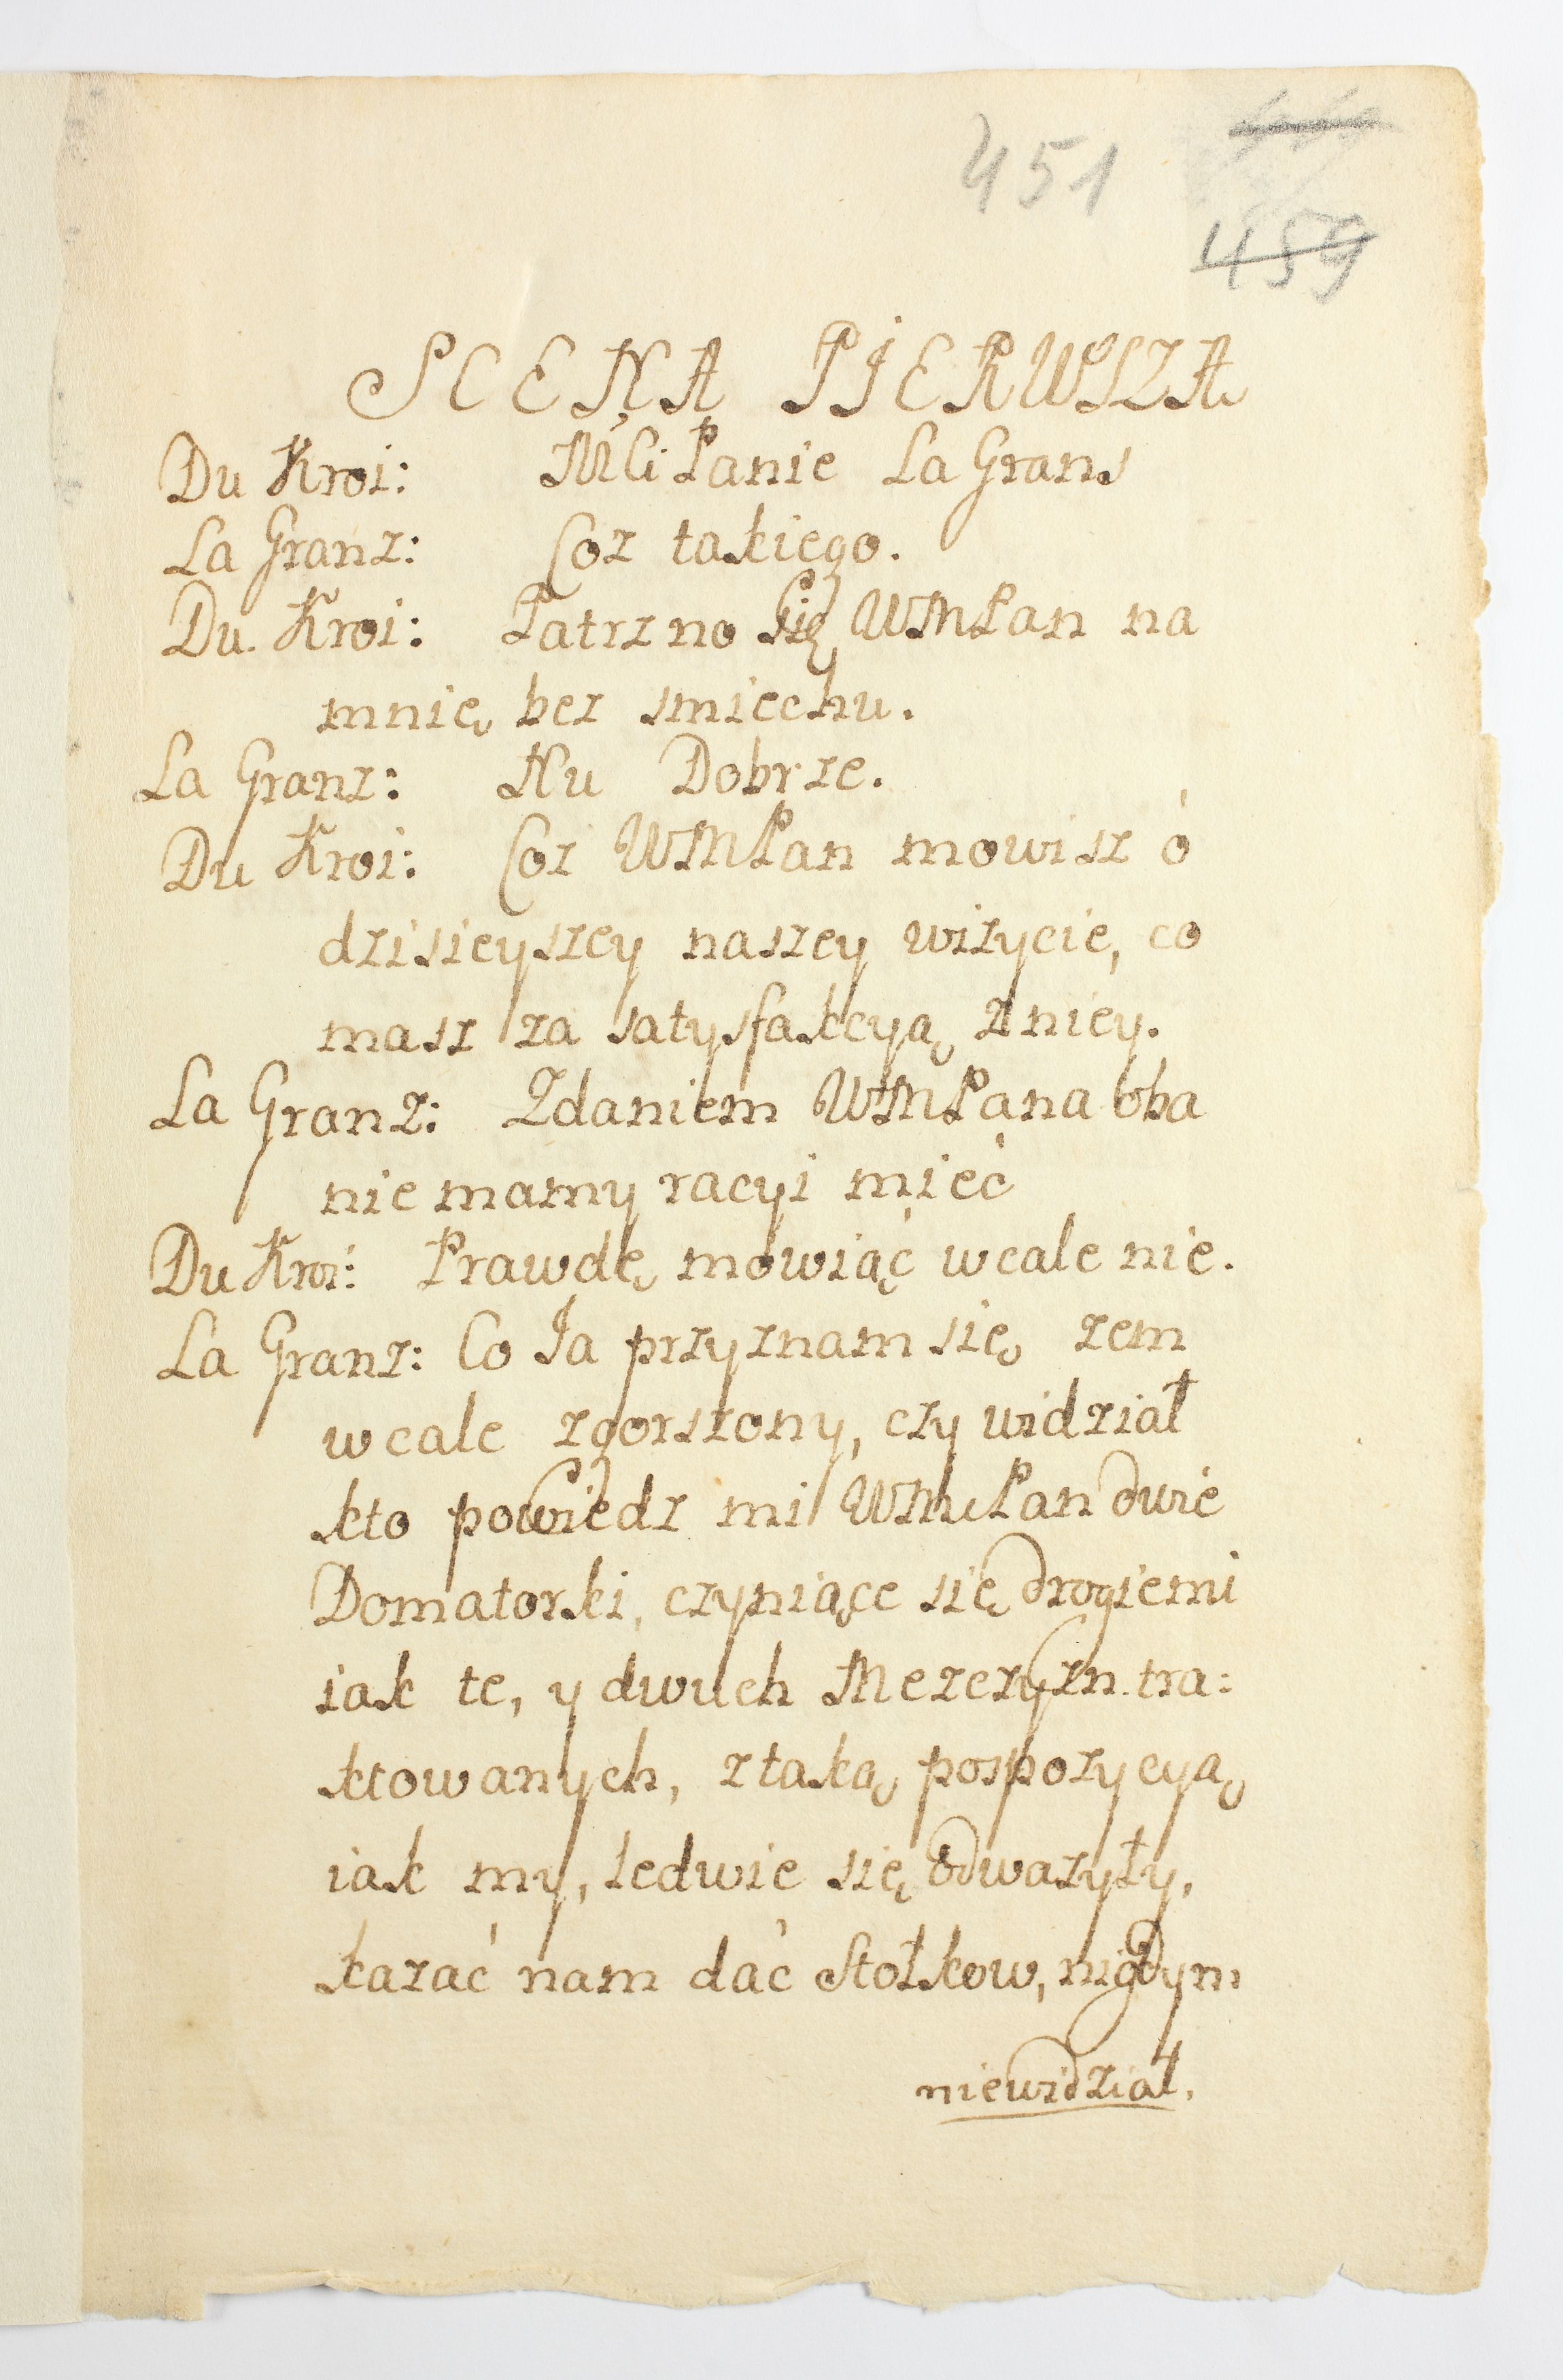 451
459
SCENA PIERWSZA
Du Kroi: Mci Panie La Grans
La Granz: Coz takiego.
Du. Kroi: Patrz no się WMPan na
mnię bez smiechu.
La Granz: Nu Dobrze.
Du Kroi: Coz WMPan mowisz ó
dzisieyszey naszey wizycie, co
masz za satysfakcyą z niey.
La Granz: Zdaniem WMPana oba
nie mamy racyi mieć
Du Kroi: Prawdę mówiąć wcale nie.
La Granz: Co Ja przyznam się zem
wcale zgorszony, czy widział
kto powiedz mi WMPan dwie
Domatorki, czyniące się drogiemi
iak te, y dwuch Mezczyzn tra:
ktowanych, z taką pospozycyą
iak my, ledwie się odwazyły,
kazać nam dać Stołkow, nigdym
niewidział.